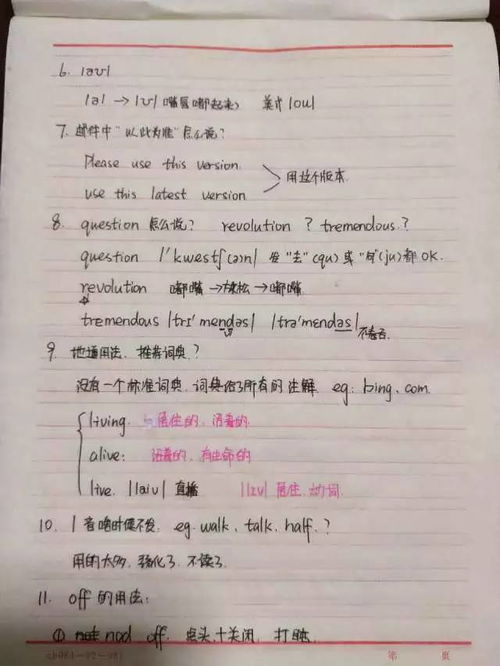 6. |əʊ|
|ə| → |ʊ| (嘴唇嘟起来) 美式 |oʊ|
7. 邮件中"以此为准"怎么说?
Please use this version.
use this latest version
用这个版本.
8. question 怎么说? revolution ? tremendous.?
question |'kwestʃ(ə)n| 发"去"(qu) 或 "句"(ju)都 OK.
revolution 嘟嘴→放松→嘟嘴
tremendous |trɪ'mendəs| |trə'mendəs| 不卷舌
9. 地道用法、推荐词典.?
没有一个标准词典. 词典给了所有的注解. eg: bing. com.
living. 居住的, 活着的.
alive: 活着的, 有生命的
live. |laiv| 直播 |lɪv| 居住. 动词.
10. l 音啥时候不发. eg. walk、talk. half.?
用的太多, 弱化了. 不读了.
11. off 的用法:
① nod off. 点头+关闭. 打盹.
第 页